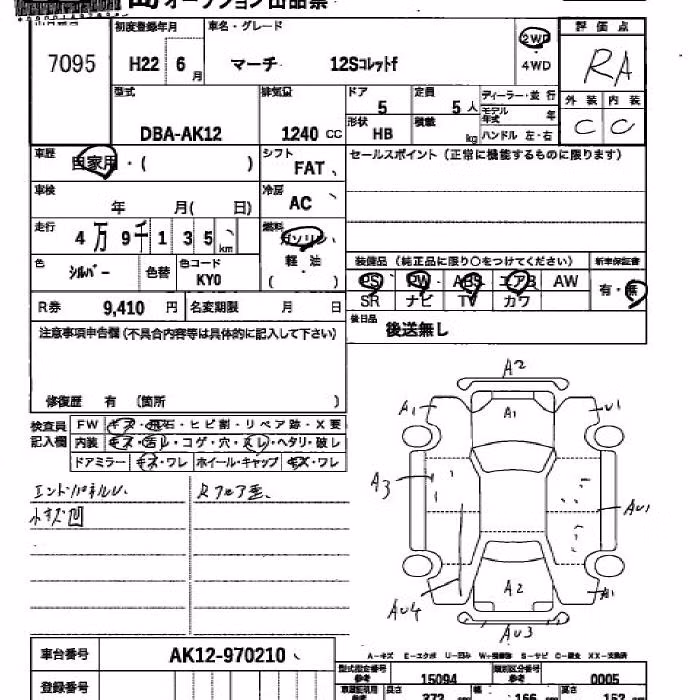 オークション出品票
7095
初度登録年月 車名・グレード
H22 6月 マーチ 12Sコレットf
2WD
4WD
評価点
RA
外装 内装
C C
型式 排気量 ドア 定員 ディーラー・並行
DBA-AK12 1240 CC 5 5人
モデル年式 年
形状 積載
HB kg ハンドル 左・右
車歴 自家用・( )
シフト FAT
セールスポイント(正常に機能するものに限ります)
車検 年 月( 日)
冷房 AC
走行 4万9千135km
燃料 ガソリン
軽・油
( )
色 シルバー 色替 色コード KY0
装備品(純正品に限り○をつけてください) 新車保証書
PS PW ABS エアB AW 有・無
SR ナビ TV カワ
R券 9,410円 名変期限 月 日
後日品 後送無し
注意事項申告欄(不具合内容等は具体的に記入して下さい)
修復歴 有 (箇所 )
検査員記入欄
FW キズ・飛石・ヒビ割・リペア跡・X要
内装 キズ・汚レ・コゲ・穴・スレ・ヘタリ・破レ
ドアミラー キズ・ワレ ホイール・キャップ キズ・ワレ
エンドパネルU、 Rフロア歪、
小キズ凹
A2
A1 A1 U1
A3
AU1
AU4 A2 A1
AU3
A-キズ E-エクボ U-凹み W-補修跡 S-サビ C-腐食 XX-交換済
車台番号 AK12-970210
登録番号
型式指定番号 参考 15094 類別区分番号 参考 0005
長さ 373 幅 166 高さ 152